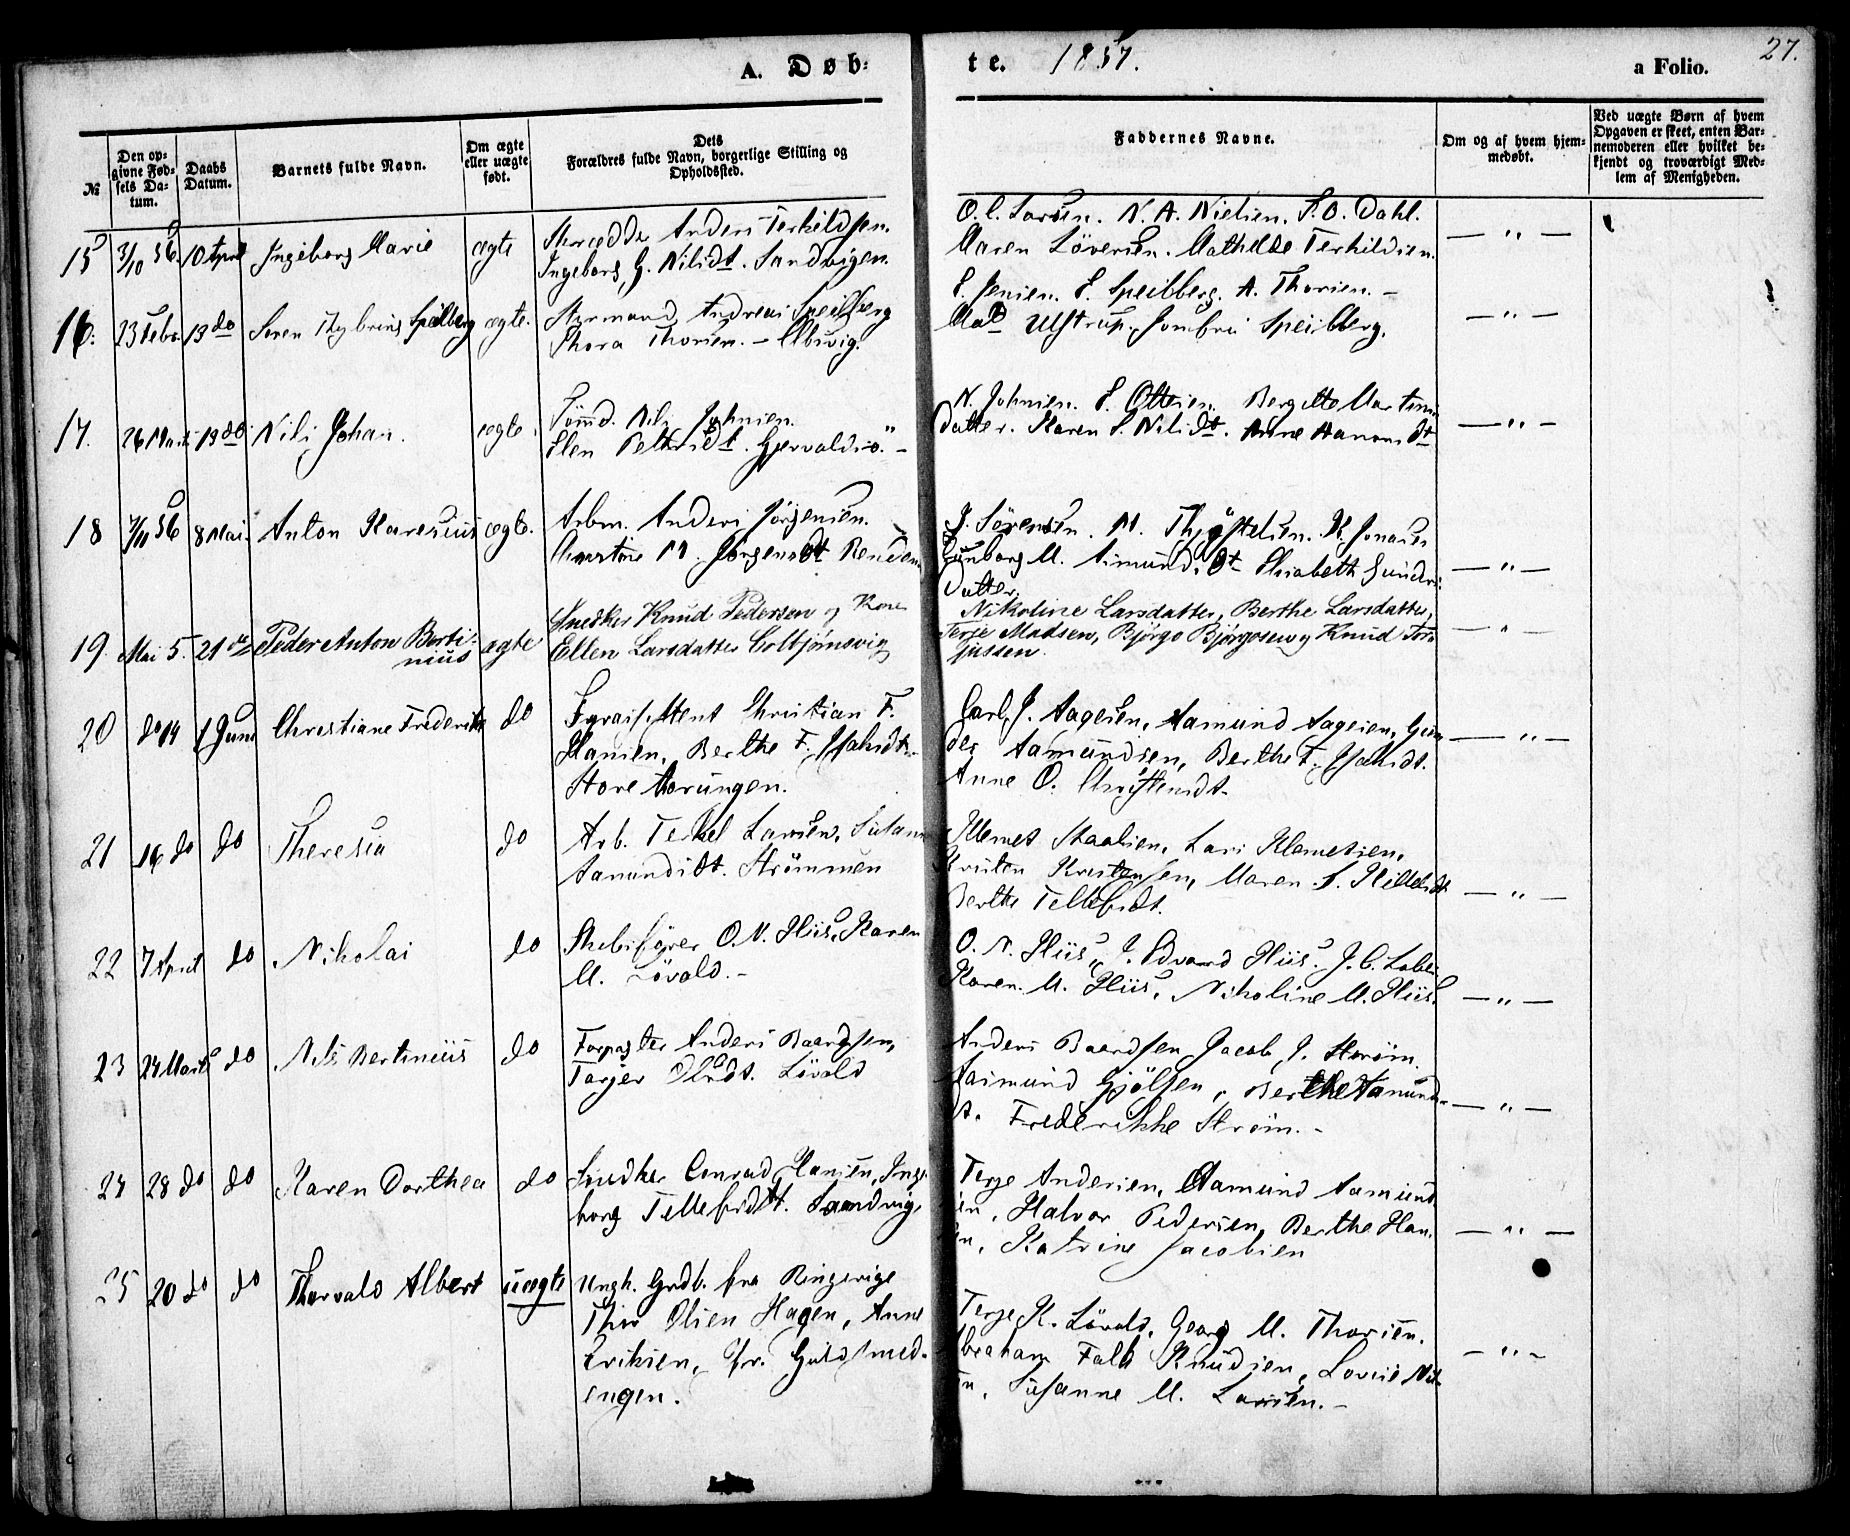 27.
A. Døb-
te. 1857.
a Folio.
№
Den op-
givne Fød-
sels Da-
tum.
Daabs
Datum.
Barnets fulde Navn.
Om ægte
eller uægte
født.
Dets
Forældres fulde Navn, borgerlige Stilling og
Opholdssted.
Faddernes Navne.
Om og af hvem hjem-
medøbt.
Ved uægte Børn af hvem
Opgaven er skeet, enten Bar-
nemoderen eller hvilket be-
kjendt og troværdigt Med-
lem af Menigheden.
15 3/10 56. 10 April Ingeborg Marie ægte
Skrædder Anders Terkildsen.
Ingeborg G. Nilsdt. Sandvigen.
O. C. Larsen. N. A. Nielsen. S. O. Dahl.
Maren Löversen. Mathilde Terkildsen.
— " —
16. 23 Febr. 13 do Soren Thybring Speilberg ægte.
Styrmand Andreas Speilberg
Thora Thorsen.
E. Jensen. E. Speilberg. A. Thorsen. –
Mad Ulstrup. Jomfru Speilberg.
— " —
17. 26 Marts 13 do Nils Johan. ægte.
Tömd. Nils Johnsen.
Elen Pettersdt. Gjervaldsö. –
N. Johnsen. E. Ottesen. Bergitte Martins
datter. Karen S. Nilsdt. Anne Hansdt
— " —
18 7/11 56 8 Mai. Anton Karenius ægte.
Arbm. Anders Jörgensen.
Christine M. Jörgensdt
J. Sörensen. M. Thyöstelsen. K. Jonasen
Gunborg M. Amundsdt Elisabeth Gunders
datter.
— " —
19. Mai 5. 21de Peder Anton Berti-
nius ægte
Snedker Knud Pedersen og Kone
Ellen Larsdatter Colbjörnsvig
Nikoline Larsdatter, Berthe Larsdatter,
Terje Madsen, Björgo Björgosen og Knud Tor-
jussen.
— " —
20 do 14 1 Juni Christiane Frederikke do
Fyrassistent Christian F.
Hansen, Berthe F. Isaksdt.
Store Torungen.
Carl J. Aagesen, Aamund Aagesen, Gun
der Aamundsen, Berthe F. Isaksdt.
Anne O. Christensdt.
— " —
21 16 do do Theresia do
Arb. Terkel Larsen, Susanne
Aanundsdt. Strömmen
Klemet Staalesen, Lars Klemetsen,
Kristen Kristensen, Maren S. Killelsdt
Berthe Tellefsdt.
— " —
22 7 April do Nikolai do
Skibsförer O. N. Hiis, Karen
M. Lövold. –
O. N. Hiis, J. Edvard Hiis. J. C.
Karen M. Hiis, Nikoline M. Hiis.
— " —
23 24 Marts do Nils Bertinius do
Forpagter Anders Baardsen,
Torjer Olsdt. Lövold
Anders Baardsen, Jacob J. Ström,
Aasmund Gjölsen, Berthe Aanunds-
dt. Frederikke Ström. –
— " —
24 28 do do Karen Dorthea do
Snedker Conrad Hansen, Inge-
borg Tellefsdtt. Sandvig.
Terje Andersen, Aamund Aamund-
sen, Halvor Pedersen, Berthe Han-
sen, Katrine Jacobsen
— " —
25 20 do do Thorvald Albert uægte
Ungk. Grdb. fra Ringerige
Thor Olsen Hagen, Anne
Eriksen, fr. Guldsmed-
engen.
Terje K. Lövold, Georg M. Thorsen.
Abraham Falk Knudsen, Lovise Niel-
sen, Susanne M. Larsen. –
– " –